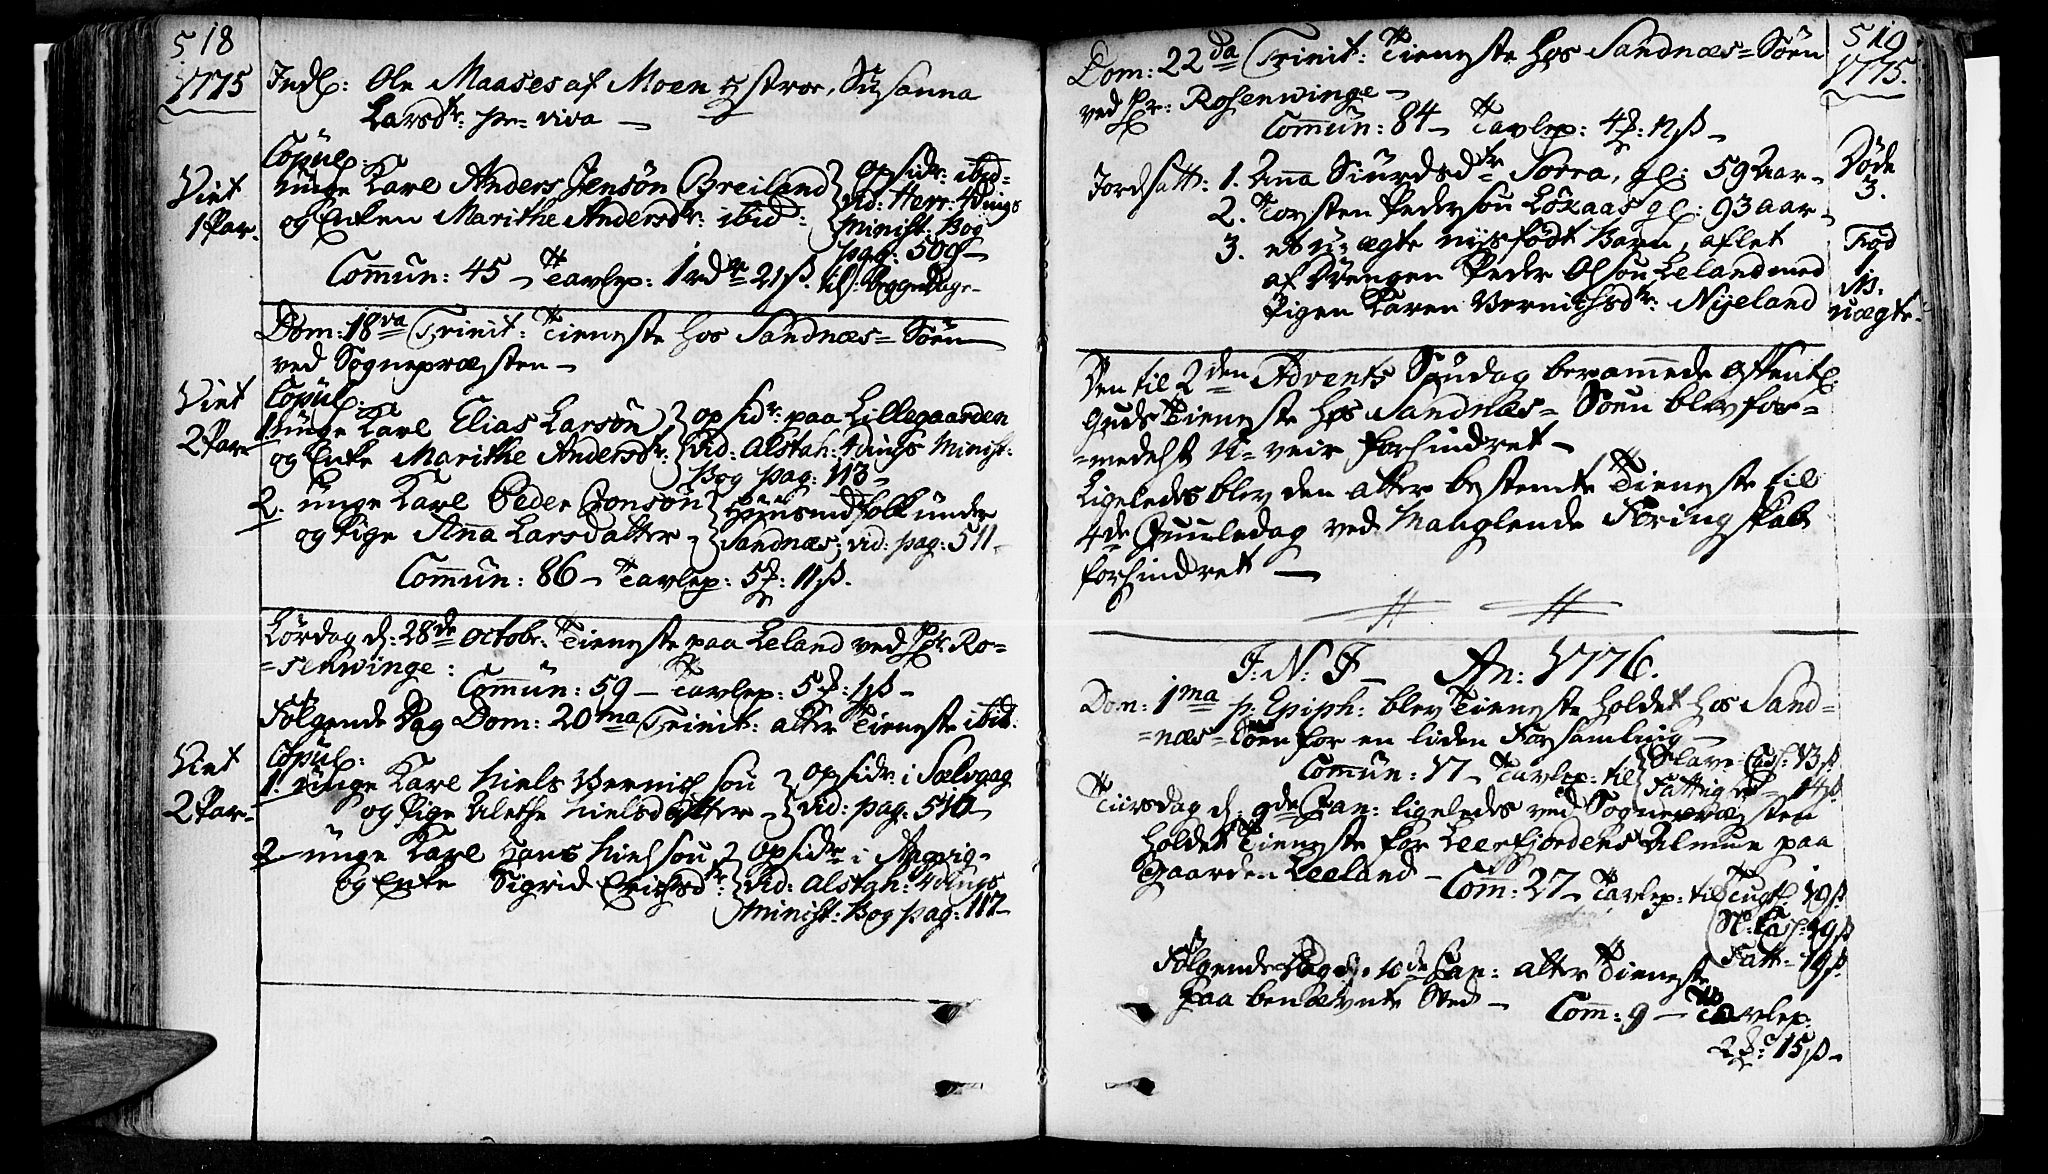 518
1775
Indl: Ole Maases af Moen Hstroe, Susanna
Larsdtr: pr viva —
Copul:
Viet
1 Par.
unge Karl Anders Jensøn Breiland
og Enken Marithe Andersdtr: ibid:
opsidr: ibid=
vid: Herr: 4dings
Minist: Bog
pag: 509 —
Commun: 45 — Tavlep: 1 rdr 21 ß. til: begge dage —
Dom: 18va Trinit: Tieneste hos Sandnæs = Søen
ved Sognepræsten —
Viet
2 Par
Copul:
1. unge Karl Elias Larsøn
og Enke Marithe Andersdr:
opsidr: paa Lillegaarden
vid: Alstah: 4dings Minist:
Bog pag: 113 —
2. unge Karl Peder Jonsøn
og Pige Anna Larsdatter —
Huusmdfolk under
Sandnæs, vid: pag: 511 —
Commun: 86 — Tavlep: 5 #: 11 ß.
Lørdag d: 28de Octobr: Tieneste paa Leland ved Pr: Ro=
=senwinge:
Commun: 59 — Tavlep: 5 #: 1 ß —
Følgende Dag Dom: 20ma Trinit: atter Tieneste ibid:
Viet
2 Par —
Copul:
1. unge Karl Niels Bernichsøn
og Pige Alethe Nielsdatter —
opsidr: i Sælvaag
vid: pag: 516 —
2 unge Karl Hans Nielsøn
og Enke Sigrid Erichsdr:
opsidr i
vid: Alstah: 4dings
Minist: Bog pag: 117 —
519
1775.
Dom: 22da Trinit: Tieneste hos Sandnæs = Søen
ved Pr: Rosenwinge —
Commun: 84 — Tavlep: 4 #: 12 ß —
Døde
3.
Jordsatt: 1. Anna Siurdsdtr Sorra, gl: 59 Aar —
2. Torsten Pedersøn Løxaas gl: 93 aar —
3. et u-ægte nysfødt Barn, aflet
af Drengen Peder Olsøn Leland med
Pigen Karen Bernichsdr: Nyeland
Fød
1
M.
uægte:
Den til 2den Advents Søndag berammede offentl:
Guds Tieneste hos Sandnæs = Søen blev for=
=medelst U=veir forhindret —
Ligeledes blev den atter bestemte Tieneste til
4de Juuledag ved Manglende Føring skab
forhindret —
J: N: J — An: 1776.
Dom: 1ma p: Epiph: blev Tieneste holdet hos Sand=
=næs = Søen for en liden Forsamling —
Commun: 17 — Tavlep: til Slave-Cass: 13 ß
Fattige — 14 ß.
Tiirsdag d: 9de Jan: ligeledes ved Sognepræsten
holdet Tieneste for Leerfjordens Almue paa
Gaarden Leeland —
Com: 27 — Tavlep: til Tugt: 19 ß.
Sl: Cass: 19 ß
Fatt — 19 ß.
Følgende Dag d: 10de Jan: atter Tieneste
paa benævnte Sted —
Com: 9 — Tavlep:
2 #: 15 ß —